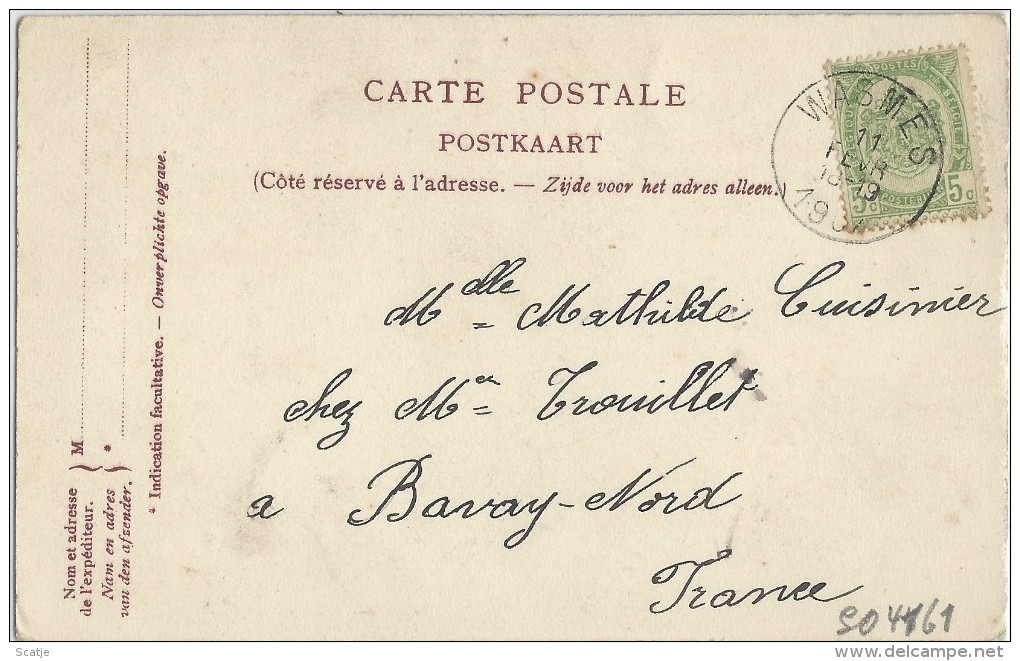 CARTE POSTALE
POSTKAART
(Côté réservé à l'adresse. — Zijde voor het adres alleen.)
WASMES
11
FEVR
18-19
POSTES
BELGIE
5c 5c
POSTERIJEN
Mdlle Mathilde Cuisinier
chez Mr Trouillet
a Bavay-Nord
France
Nom et adresse
de l'expéditeur.
Nam en adres
van den afzender.
M
*
* Indication facultative. — Onverplichte opgave.
Scatje
delcampe.net